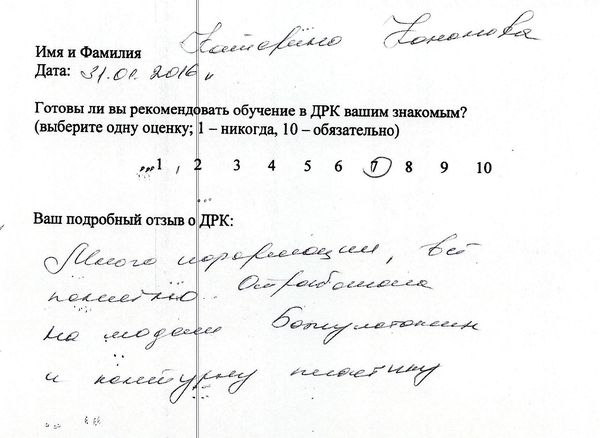 Имя и Фамилия Катерина Кононова
Дата: 31.01.2016 г
Готовы ли вы рекомендовать обучение в ДРК вашим знакомым?
(выберите одну оценку; 1 – никогда, 10 – обязательно)
1 2 3 4 5 6 7 8 9 10
Ваш подробный отзыв о ДРК:
Много информации, всё
понятно. Отработала
на модели Ботулотоксин
и контурну пластику